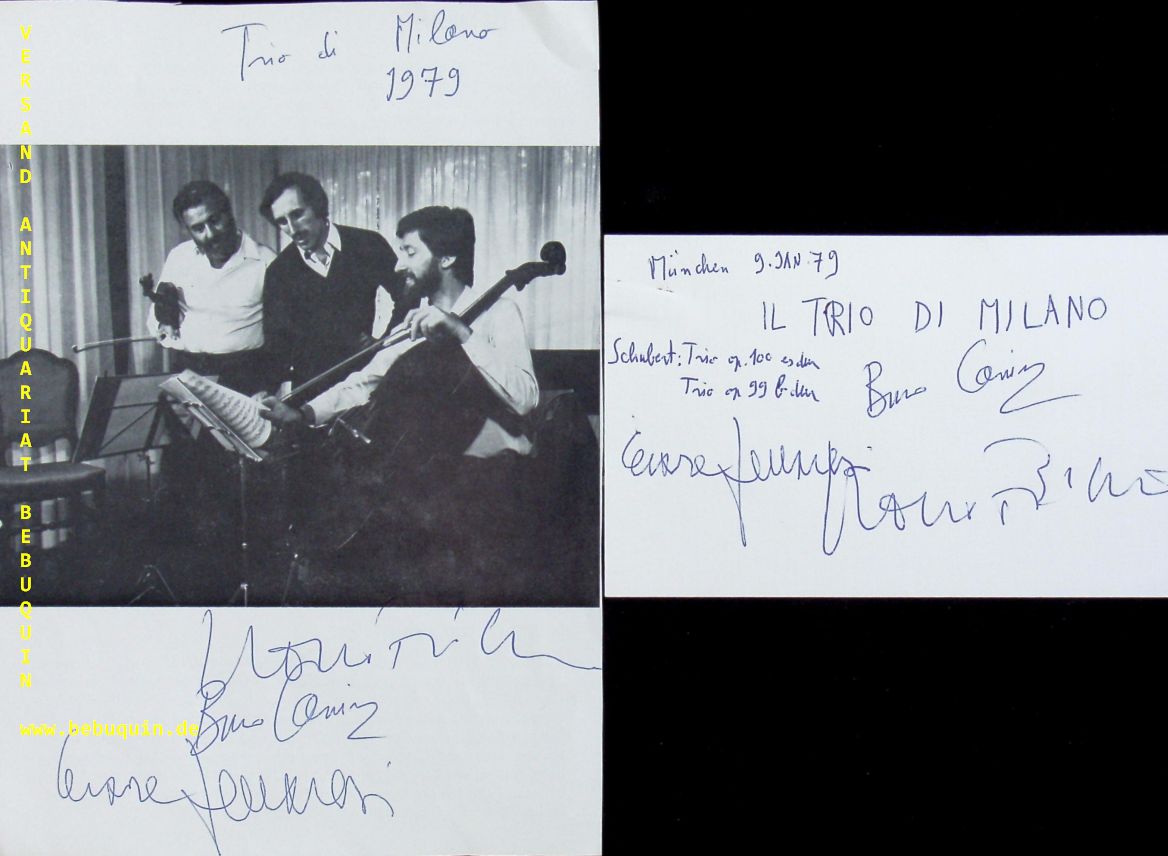 VERSAND ANTIQUARIAT BEBUQUIN
www.bebuquin.de
Trio di Milano
1979
Bruno Canino
Cesare Ferraresi
München 9.JAN.79
IL TRIO DI MILANO
Schubert: Trio op.100 es dur
Trio op 99 b dur
Bruno Canino
Cesare Ferraresi